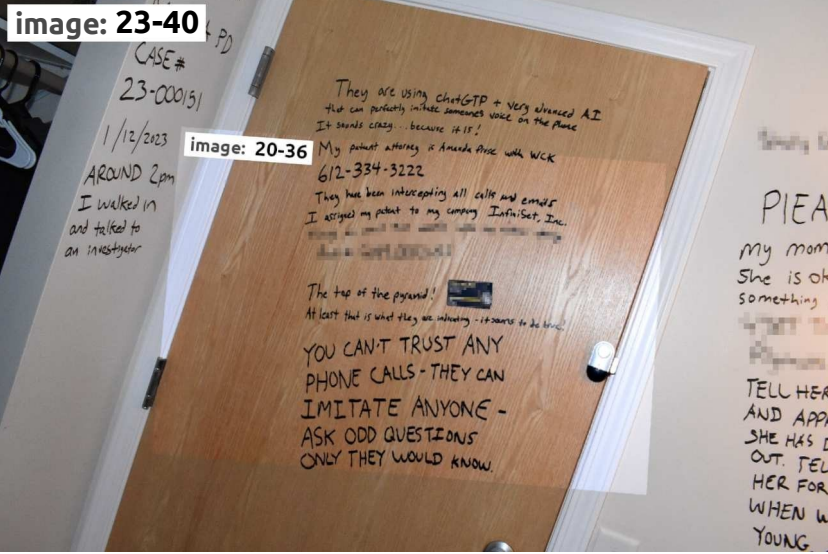 image: 23-40
PD
CASE#
23-000151
1/12/2023
AROUND 2pm
I walked in
and talked to
an investigator
image: 20-36
They are using chatGTP + very advanced AI
that can perfectly imitate someones voice on the phone
It sounds crazy... because it is!
My patent attorney is Amanda Prose with WCK
612-334-3222
They have been intercepting all calls and emails
I assigned my patent to my company InfiniSet, Inc.
The top of the pyramid!
At least that is what they are indicating - it seems to be true!
YOU CAN'T TRUST ANY
PHONE CALLS - THEY CAN
IMITATE ANYONE -
ASK ODD QUESTIONS
ONLY THEY WOULD KNOW.
PLEA
my mom
She is ok
something
TELL HER
AND APP
SHE HAS D
OUT. TEL
HER FOR
WHEN W
YOUNG